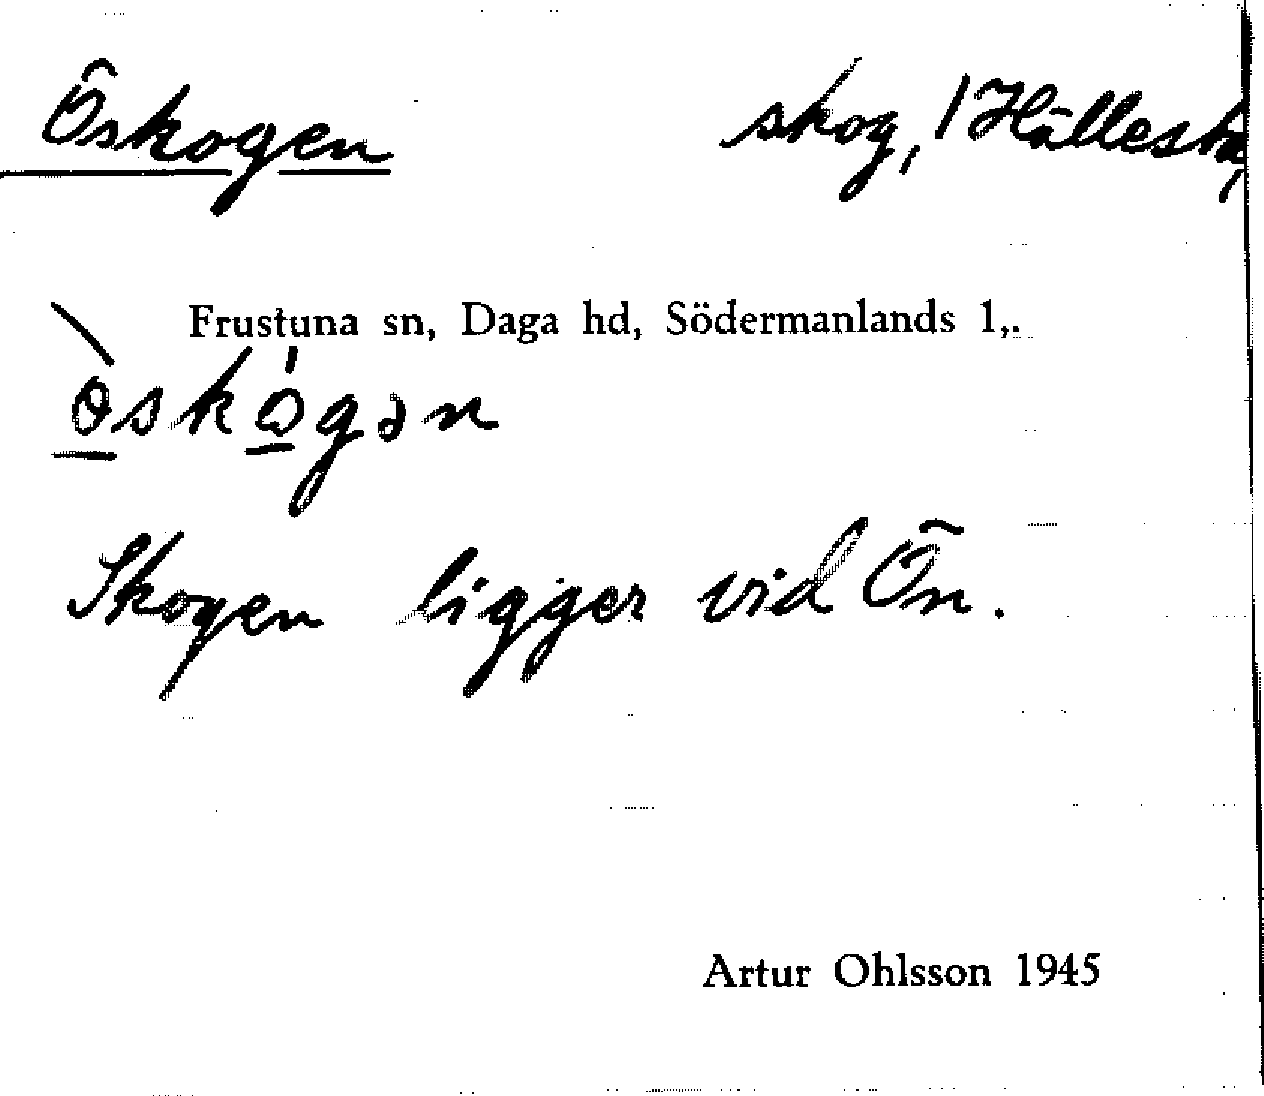 Öskogen skog, / Hällesta,
Frustuna sn, Daga hd, Södermanlands l,.
Skogen ligger vid Ön.
Artur Ohlsson 1945